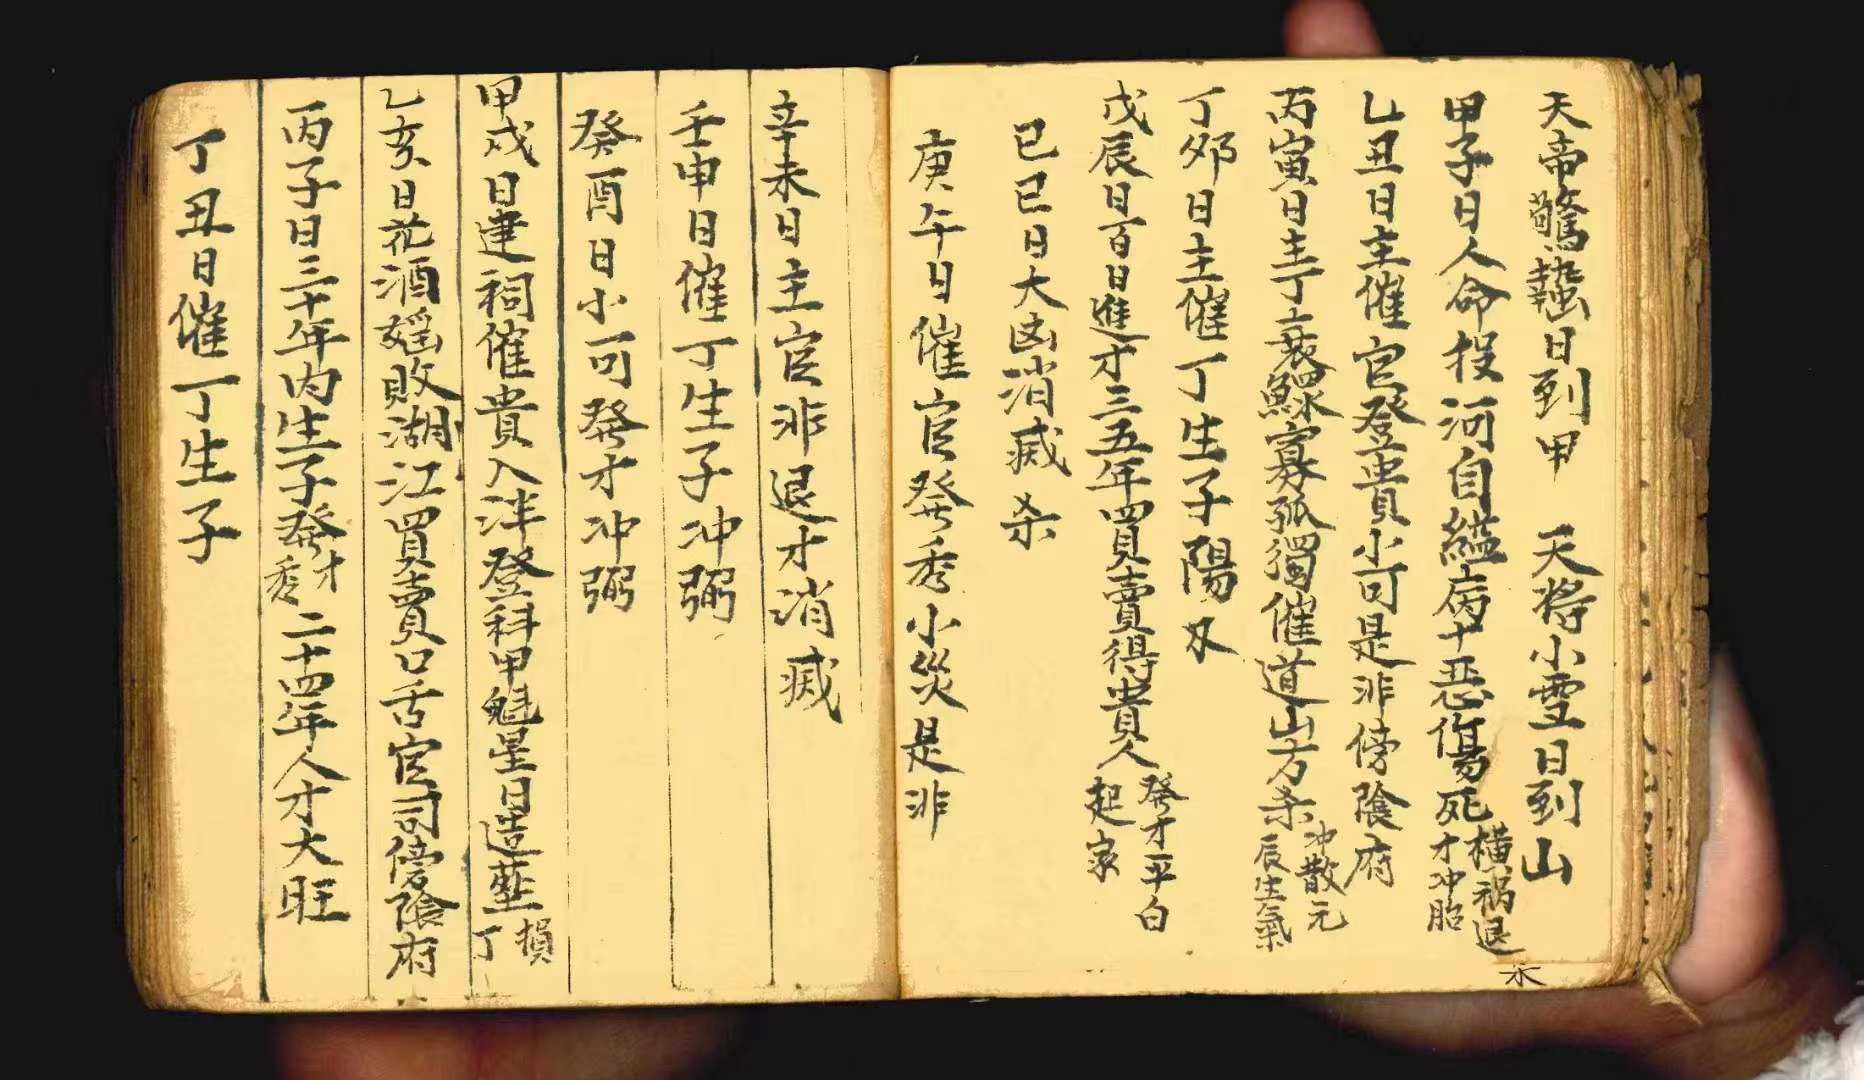 天帝驚蟄日到甲　天將小雪日到山
甲子日人命投河自縊病十惡傷死橫祸退才冲胎
乙丑日主催官登貴小可是非傍陰府
丙寅日主丁上衰鰥寡孤獨催道山方杀冲散元辰生氣
丁夘日主催丁生子陽
戊辰日百日進才三五年買賣得貴人發才平白起家
己巳日大凶消滅杀
庚午日催官發秀小災是非
辛未日主官非退才消滅
壬申日催丁生子冲弼
癸酉日小可發才冲弼
甲戌日建祠催貴入泮登科甲魁星日造塟損丁
乙亥日花酒婬敗湖江買賣口舌官司傍陰府
丙子日三十年内生子發才秀二十四年人才大旺
丁丑日催丁生子
水